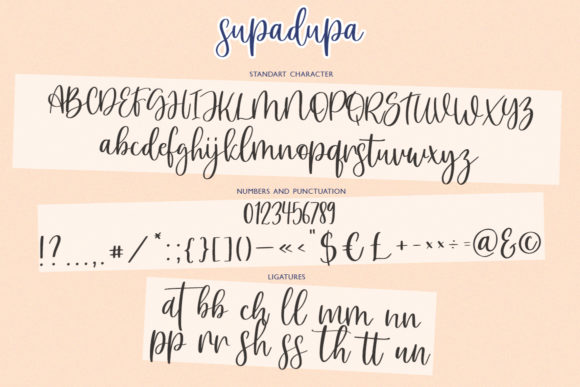 supadupa
STANDART CHARACTER
ABCDEFGHIJKLMNOPQRSTUVWXYZ
abcdefghijklmnopqrstuvwxyz
NUMBERS AND PUNCTUATION
0123456789
!?...,.#/"*:;{}[]()—«‹"$€£+-××÷=@&©
LIGATURES
at bb ch ll mm nn
pp rr sh ss th tt un